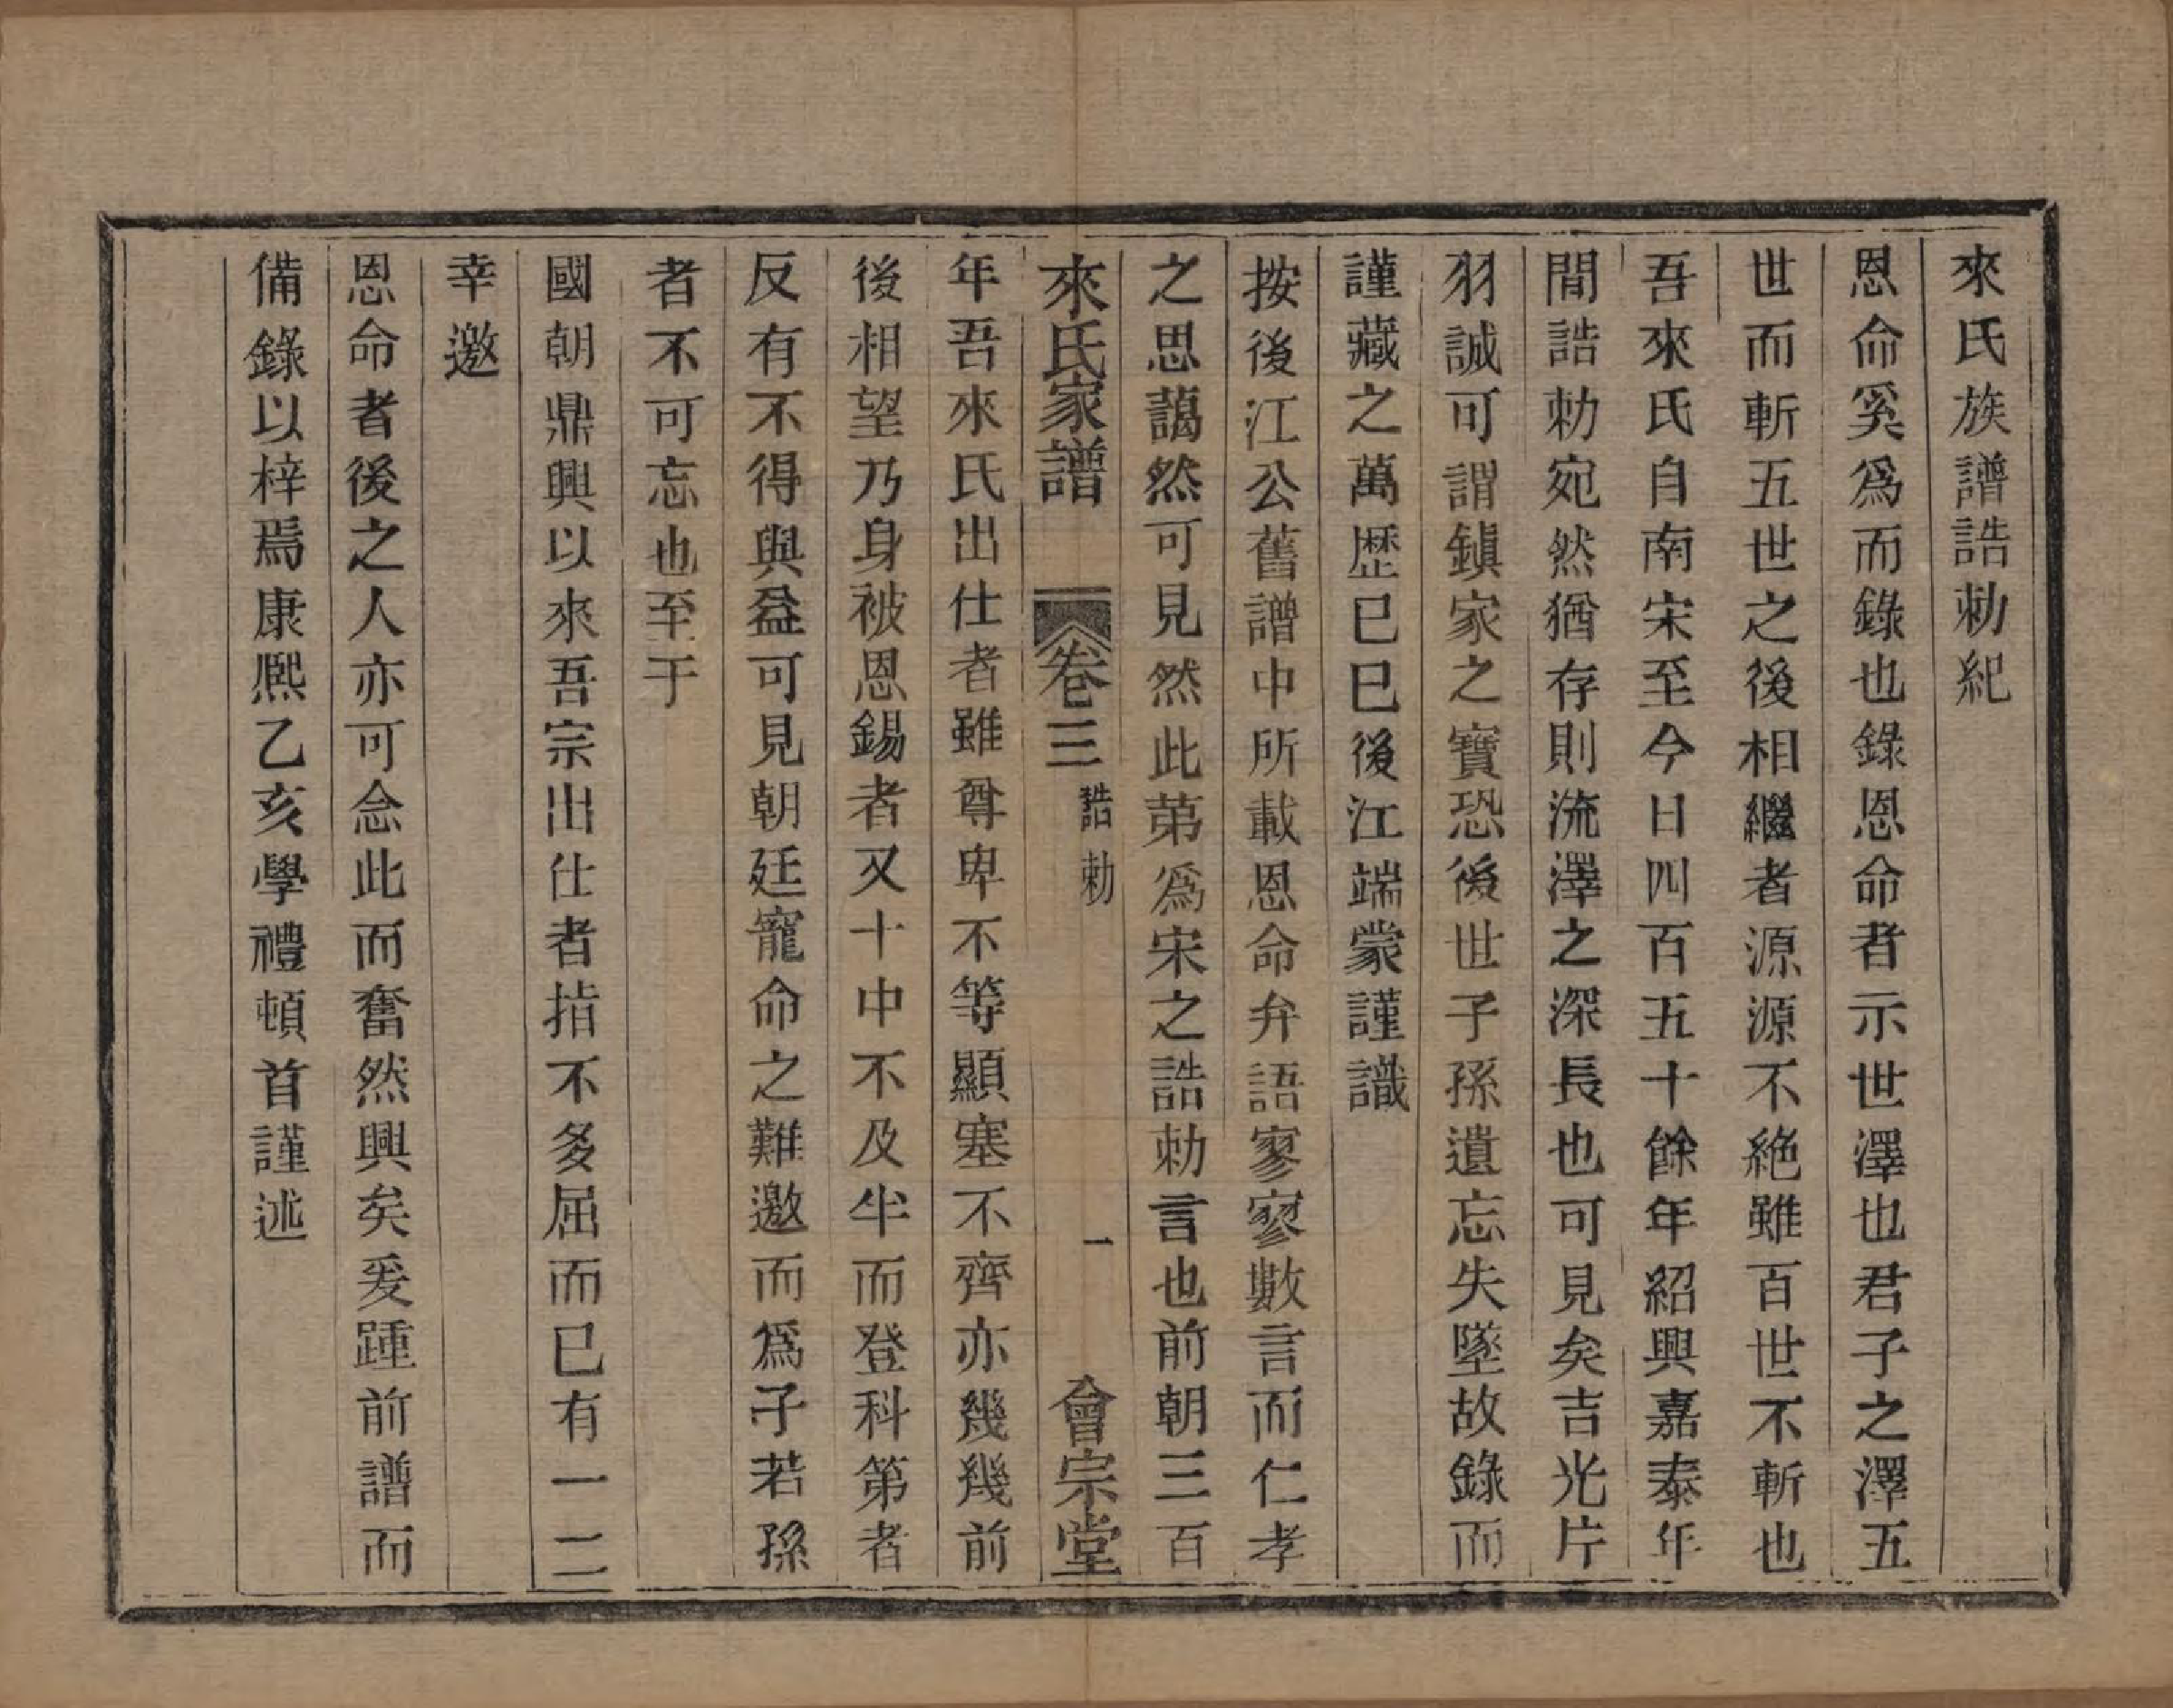 來氏族譜誥勅紀
恩命奚爲而錄也錄恩命者示世澤也君子之澤五
世而斬五世之後相繼者源源不絶雖百世不斬也
吾來氏自南宋至今日四百五十餘年紹興嘉泰年
間誥勅宛然猶存則流澤之深長也可見矣吉光片
羽誠可謂鎮家之寶恐後世子孫遺忘失墜故錄而
謹藏之萬歷己巳後江端蒙謹識
按後江公舊譜中所載恩命弁語寥寥數言而仁孝
之思藹然可見然此第爲宋之誥勅言也前朝三百
來氏家譜 卷三 誥勅 一 會宗堂
年吾來氏出仕者雖尊卑不等顯塞不齊亦幾幾前
後相望乃身被恩錫者又十中不及半而登科第者
反有不得與益可見朝廷寵命之難邀而爲子若孫
者不可忘也至于
國朝鼎興以來吾宗出仕者指不多屈而已有一二
幸邀
恩命者後之人亦可念此而奮然興矣爰踵前譜而
備錄以梓焉康熙乙亥學禮頓首謹述